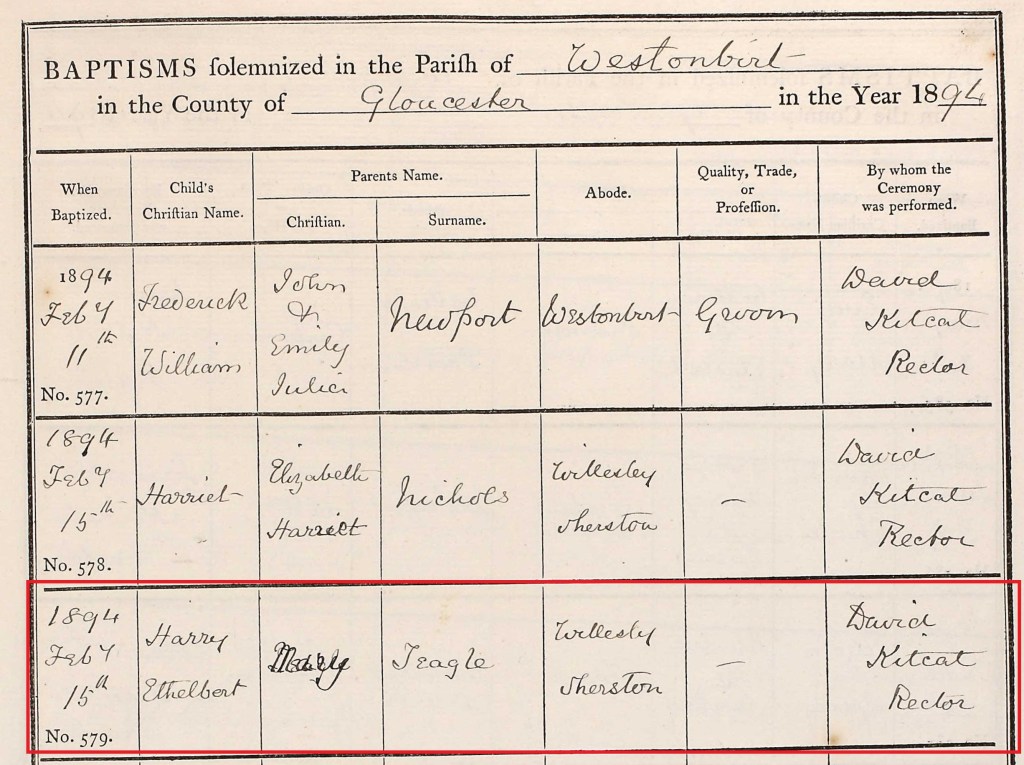 BAPTISMS ſolemnized in the Pariſh of Westonbirt
in the County of Gloucester in the Year 1894
When
Baptized.
Child's
Chriſtian Name.
Parents Name.
Chriſtian.
Surname.
Abode.
Quality, Trade,
or
Profeſſion.
By whom the
Ceremony
was performed.
1894
Feby
11th
No. 577.
Frederick
William
John
&
Emily
Julia
Newport
Westonbirt
Groom
David
Kitcat
Rector
1894
Feby
15th
No. 578.
Harriet
Elizabeth
Harriet
Nichols
Willesley
Sherston
—
David
Kitcat
Rector
1894
Feby
15th
No. 579.
Harry
Ethelbert
Teagle
Willesly
Sherston
—
David
Kitcat
Rector